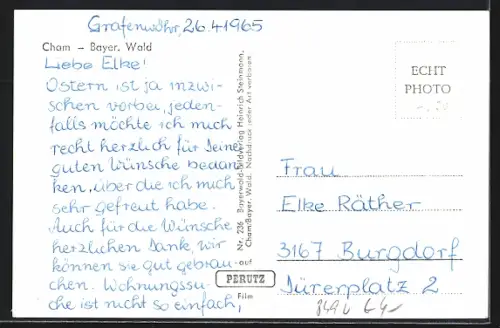 Grafenwöhr, 26.4.1965
Cham – Bayer. Wald
Liebe Elke!
Ostern ist ja inzwi-
schen vorbei, jeden-
falls möchte ich mich
recht herzlich für Deine
guten Wünsche bedan-
ken, über die ich mich
sehr gefreut habe.
Auch für die Wünsche
herzlichen Dank, wir
können sie gut gebrau-
chen. Wohnungssu-
che ist nicht so einfach,
Nr. 236 Bayerwald-Bildverlag Heinrich Steinmann,
Cham/Bayer. Wald. Nachdruck jeder Art verboten
auf
PERUTZ
Film
ECHT
PHOTO
Frau
Elke Räther
3167 Burgdorf
Dürerplatz 2